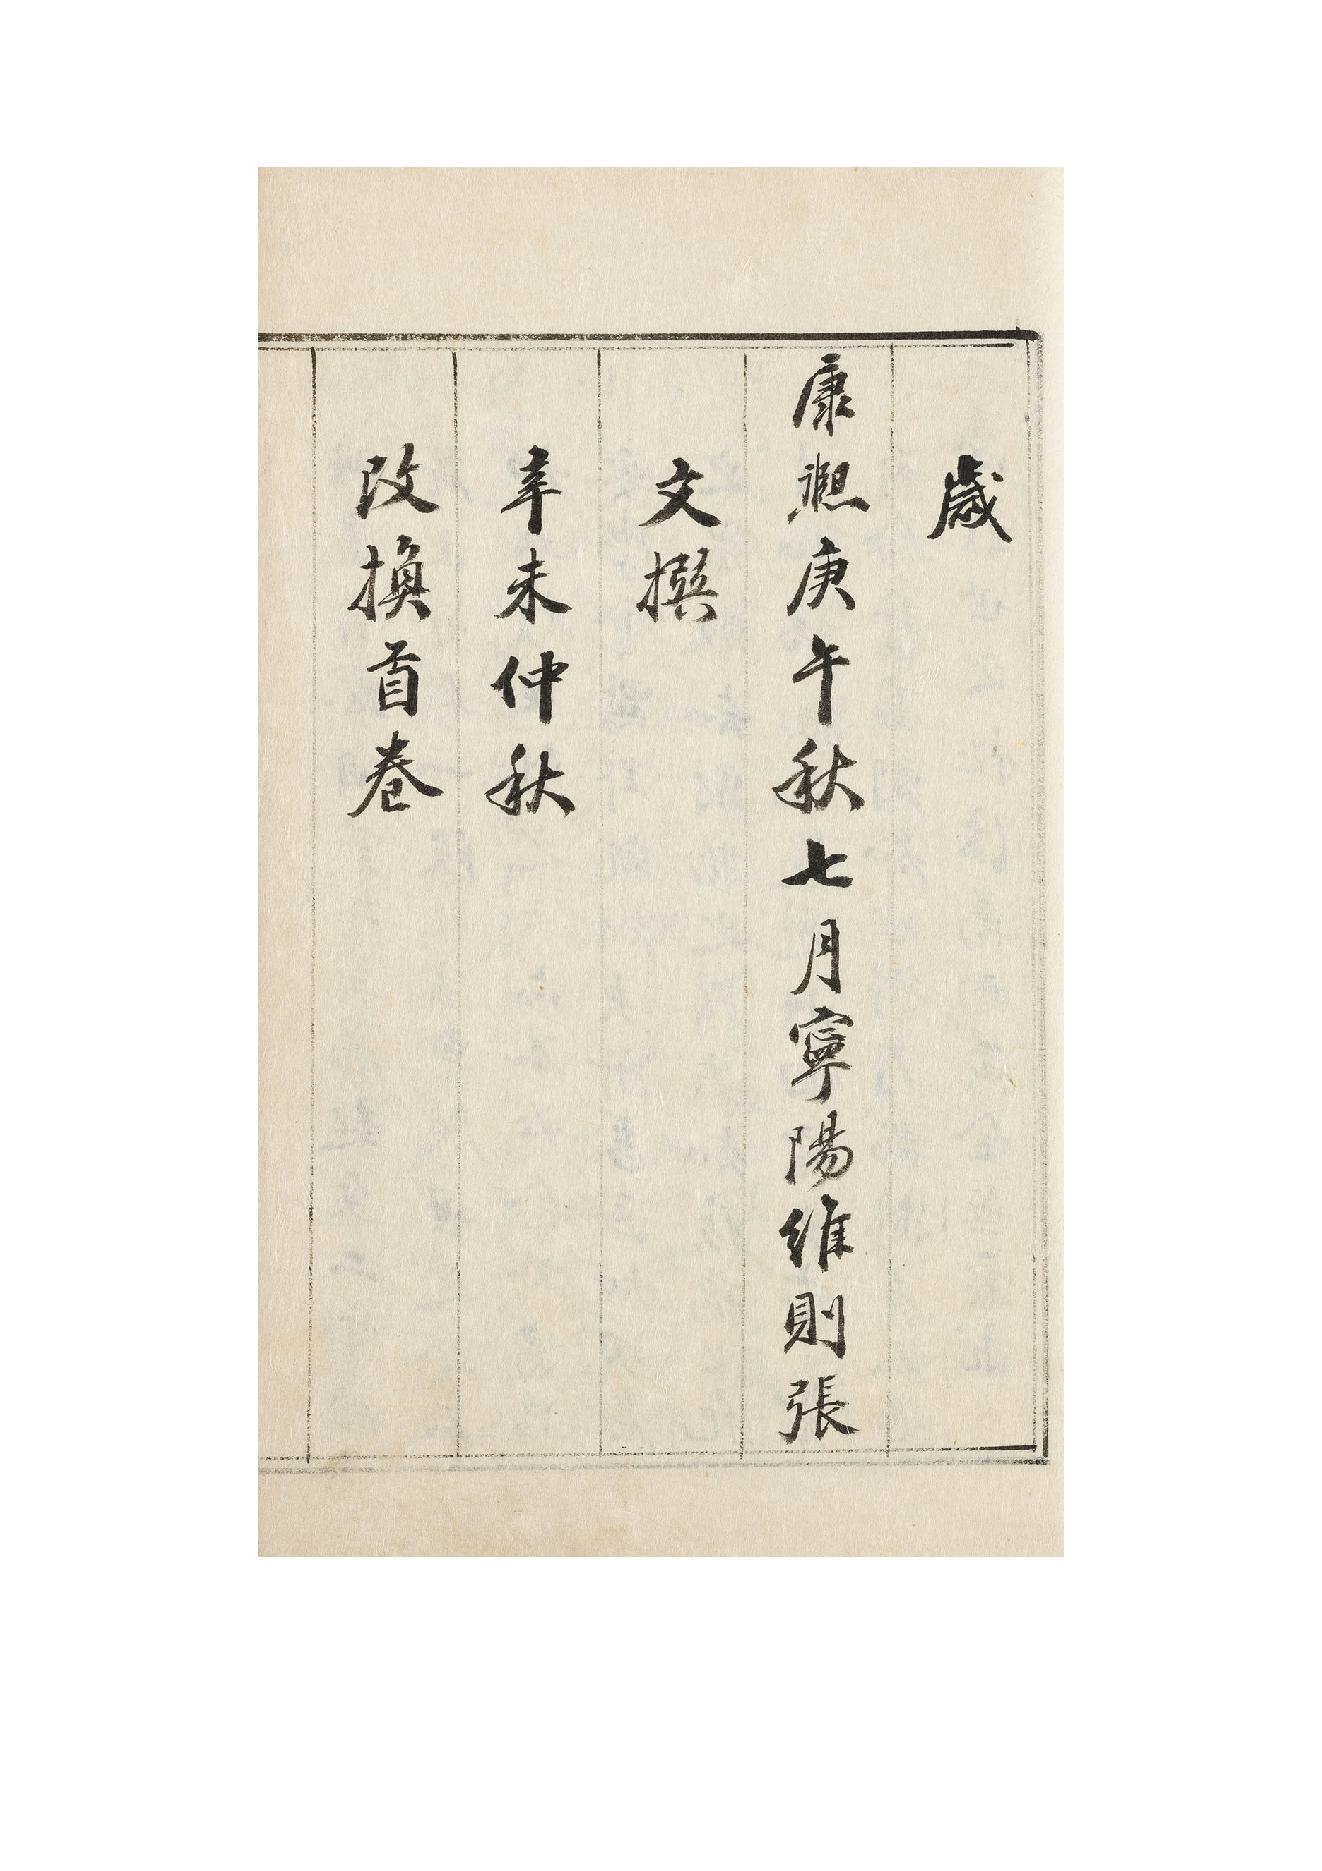 歲
康熙庚午秋七月寧陽維則張
文撰
辛未仲秋
改換首卷